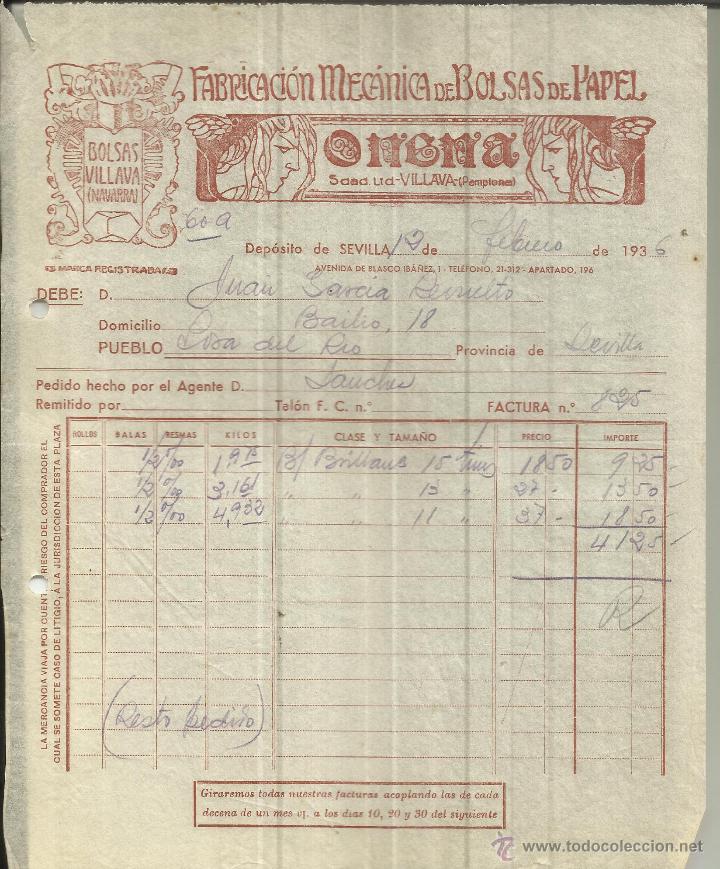 FABRICACIÓN MECÁNICA DE BOLSAS DE PAPEL
ONENA
Sdad. Ltd.-VILLAVA-(Pamplona)
BOLSAS
VILLAVA
(NAVARRA)
MARCA REGISTRADA
60 a
Depósito de SEVILLA 12 de febrero de 1936
AVENIDA DE BLASCO IBÁÑEZ, 1 - TELÉFONO, 21-312 - APARTADO, 196
DEBE: D. Juan García
Domicilio Bailio, 18
PUEBLO del Rio Provincia de Sevilla
Pedido hecho por el Agente D. Sanchez
Remitido por Talón F. C. n.º FACTURA n.º 825
ROLLOS BALAS RESMAS KILOS CLASE Y TAMAÑO PRECIO IMPORTE
1/2 %00 1,915 B/ Brillans 15 18 50 9 25
1/2 %00 3,161 " 13 " 27 - 13 50
1/2 %00 4,932 " 11 " 37 - 18 50
41 25
R
(Resto pedido)
LA MERCANCIA VIAJA POR CUENTA Y RIESGO DEL COMPRADOR EL
CUAL SE SOMETE CASO DE LITIGIO, A LA JURISDICCION DE ESTA PLAZA
Giraremos todas nuestras facturas acoplando las de cada
decena de un mes v/. a los dias 10, 20 y 30 del siguiente
www.todocoleccion.net